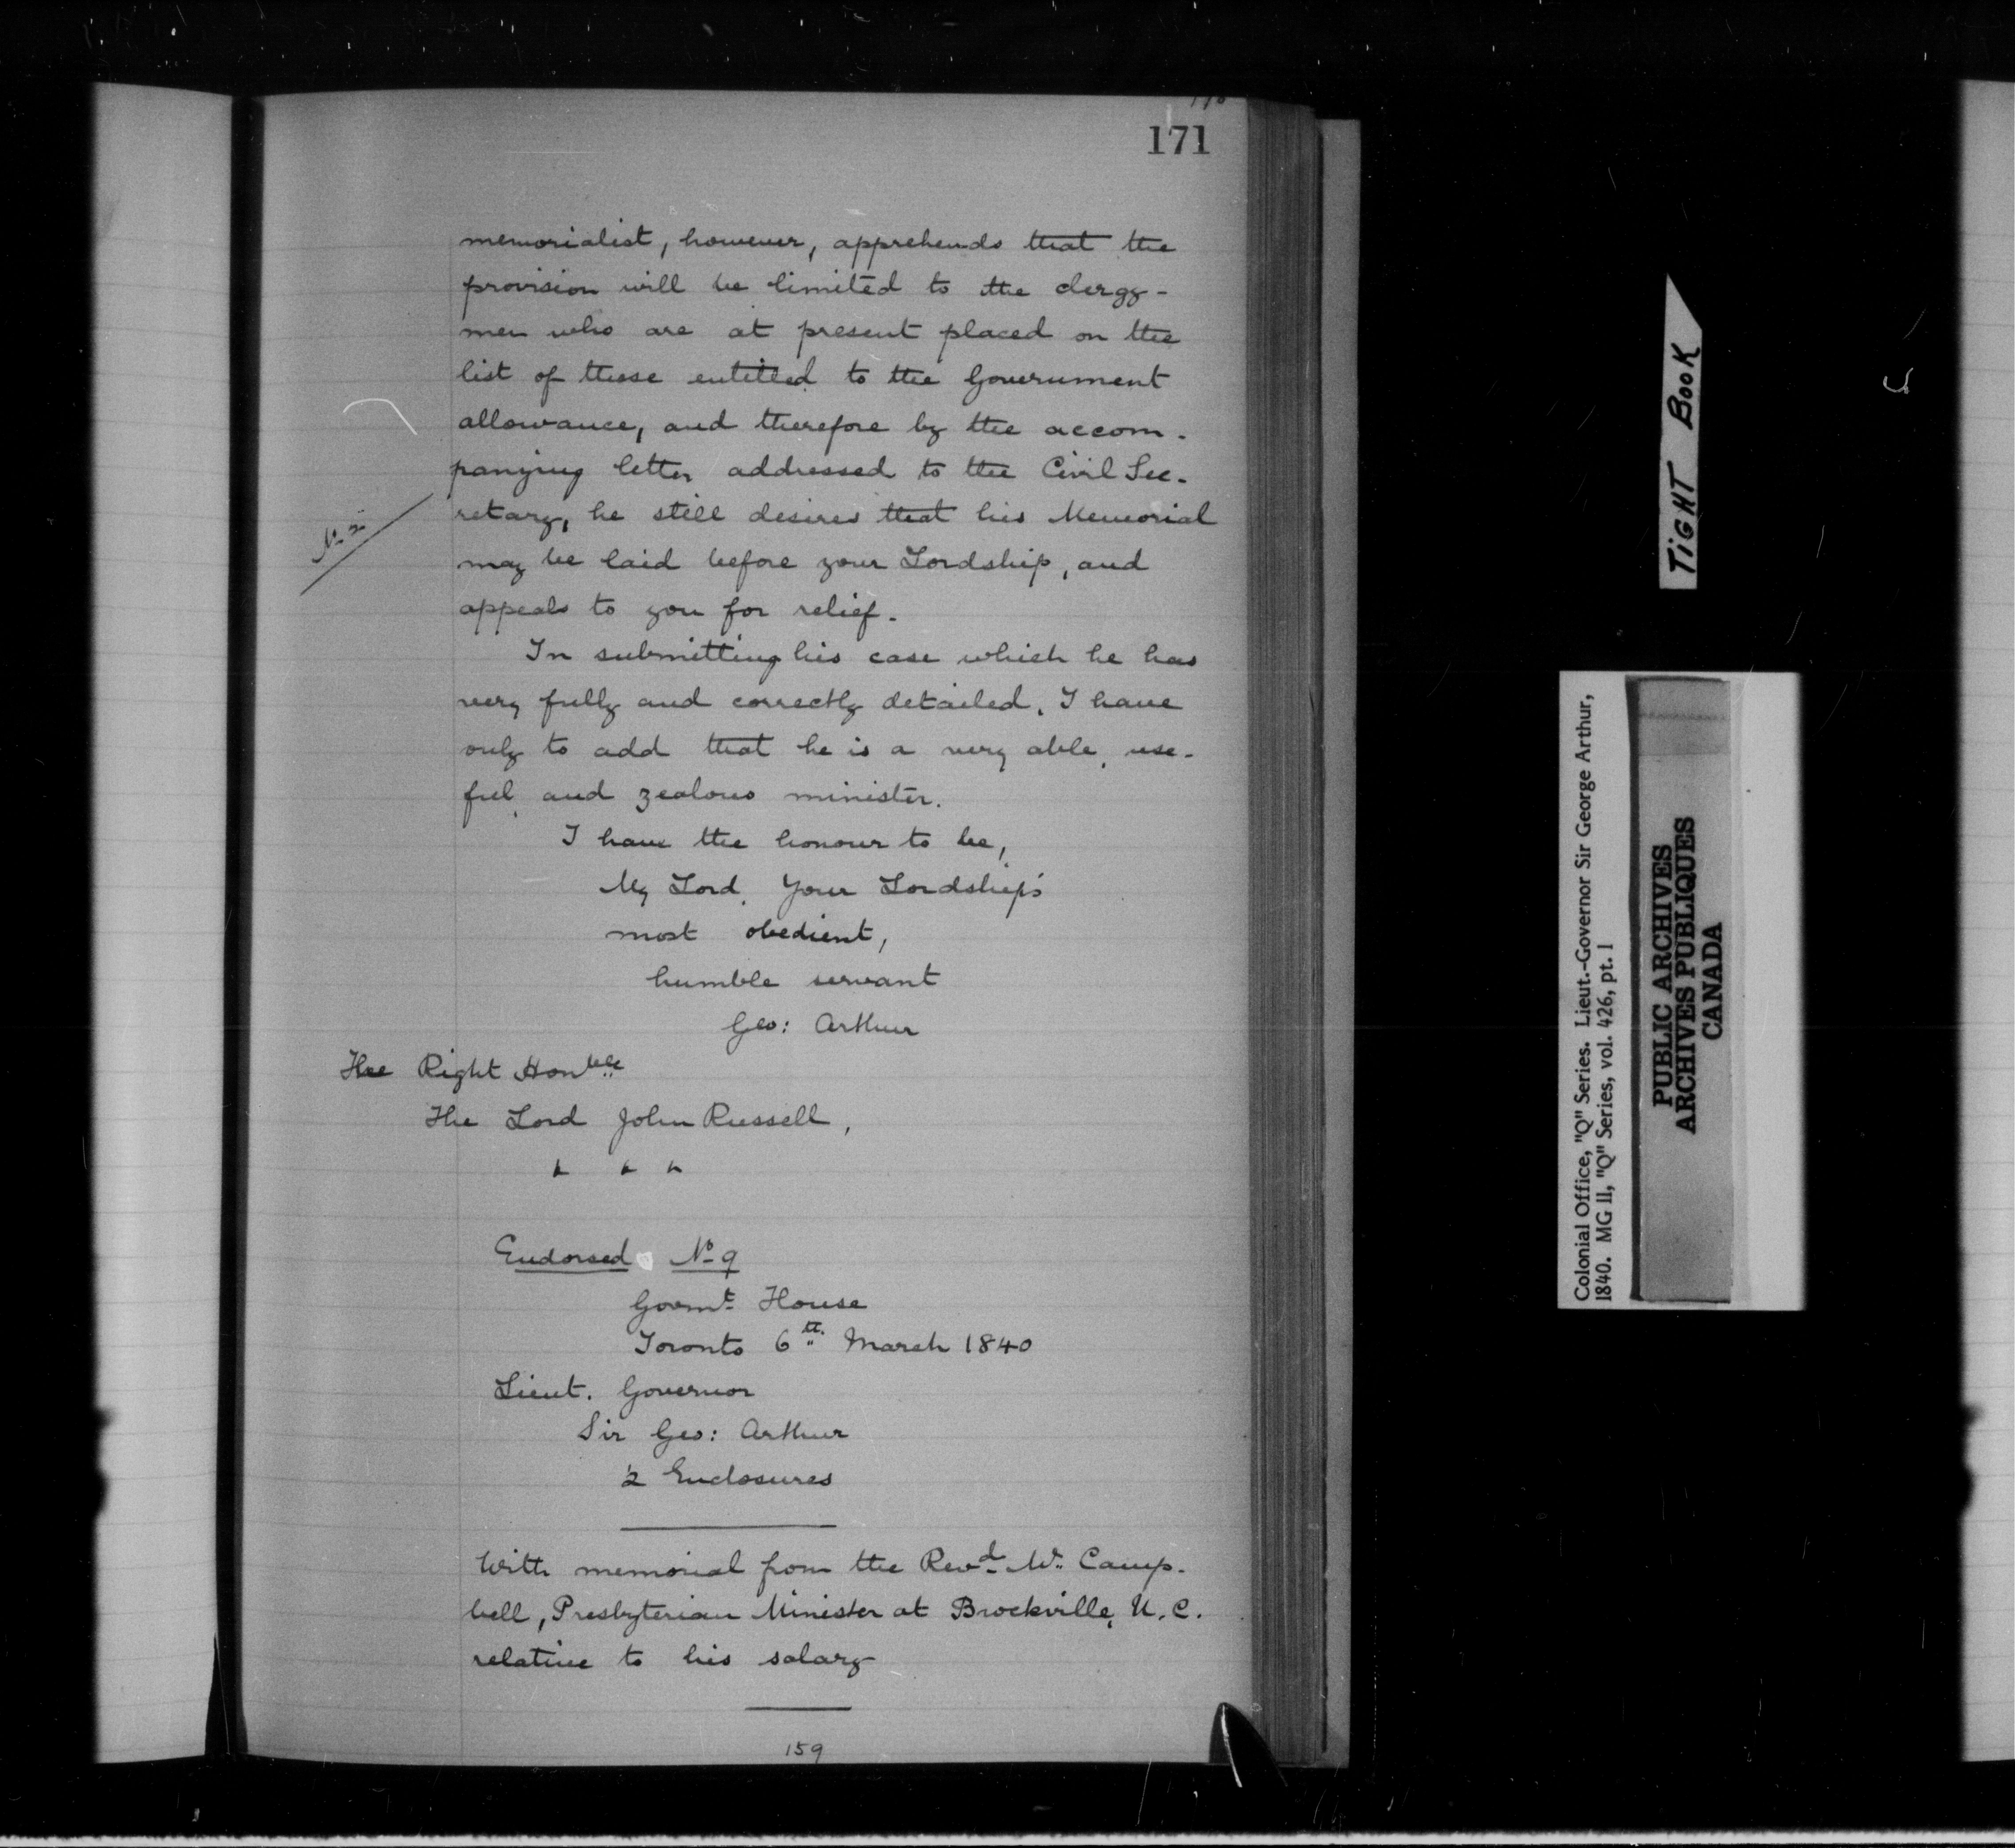 171
memorialist, however, apprehends that the
provision will be limited to the clergy-
men who are at present placed on the
list of those entitled to the Government
allowance, and therefore by the accom-
panying letter addressed to the Civil Sec-
retary, he still desires that his Memorial
No 2
may be laid before your Lordship, and
appeals to you for relief.
In submitting his case which he has
very fully and correctly detailed, I have
only to add that he is a very able, use-
ful, and zealous minister.
I have the honour to be,
My Lord, Your Lordship's
most obedient,
humble servant
Geo: Arthur
The Right Honble
The Lord John Russell,
Endorsed No 9
Govmt House
Toronto 6th March 1840
Lieut. Governor
Sir Geo: Arthur
2 Enclosures
With memorial from the Revd Wm Camp-
bell, Presbyterian Minister at Brockville, U.C.
relative to his salary
159
TIGHT BOOK
Colonial Office, "Q" Series. Lieut.-Governor Sir George Arthur,
1840. MG 11, "Q" Series, vol. 426, pt. 1
PUBLIC ARCHIVES
ARCHIVES PUBLIQUES
CANADA